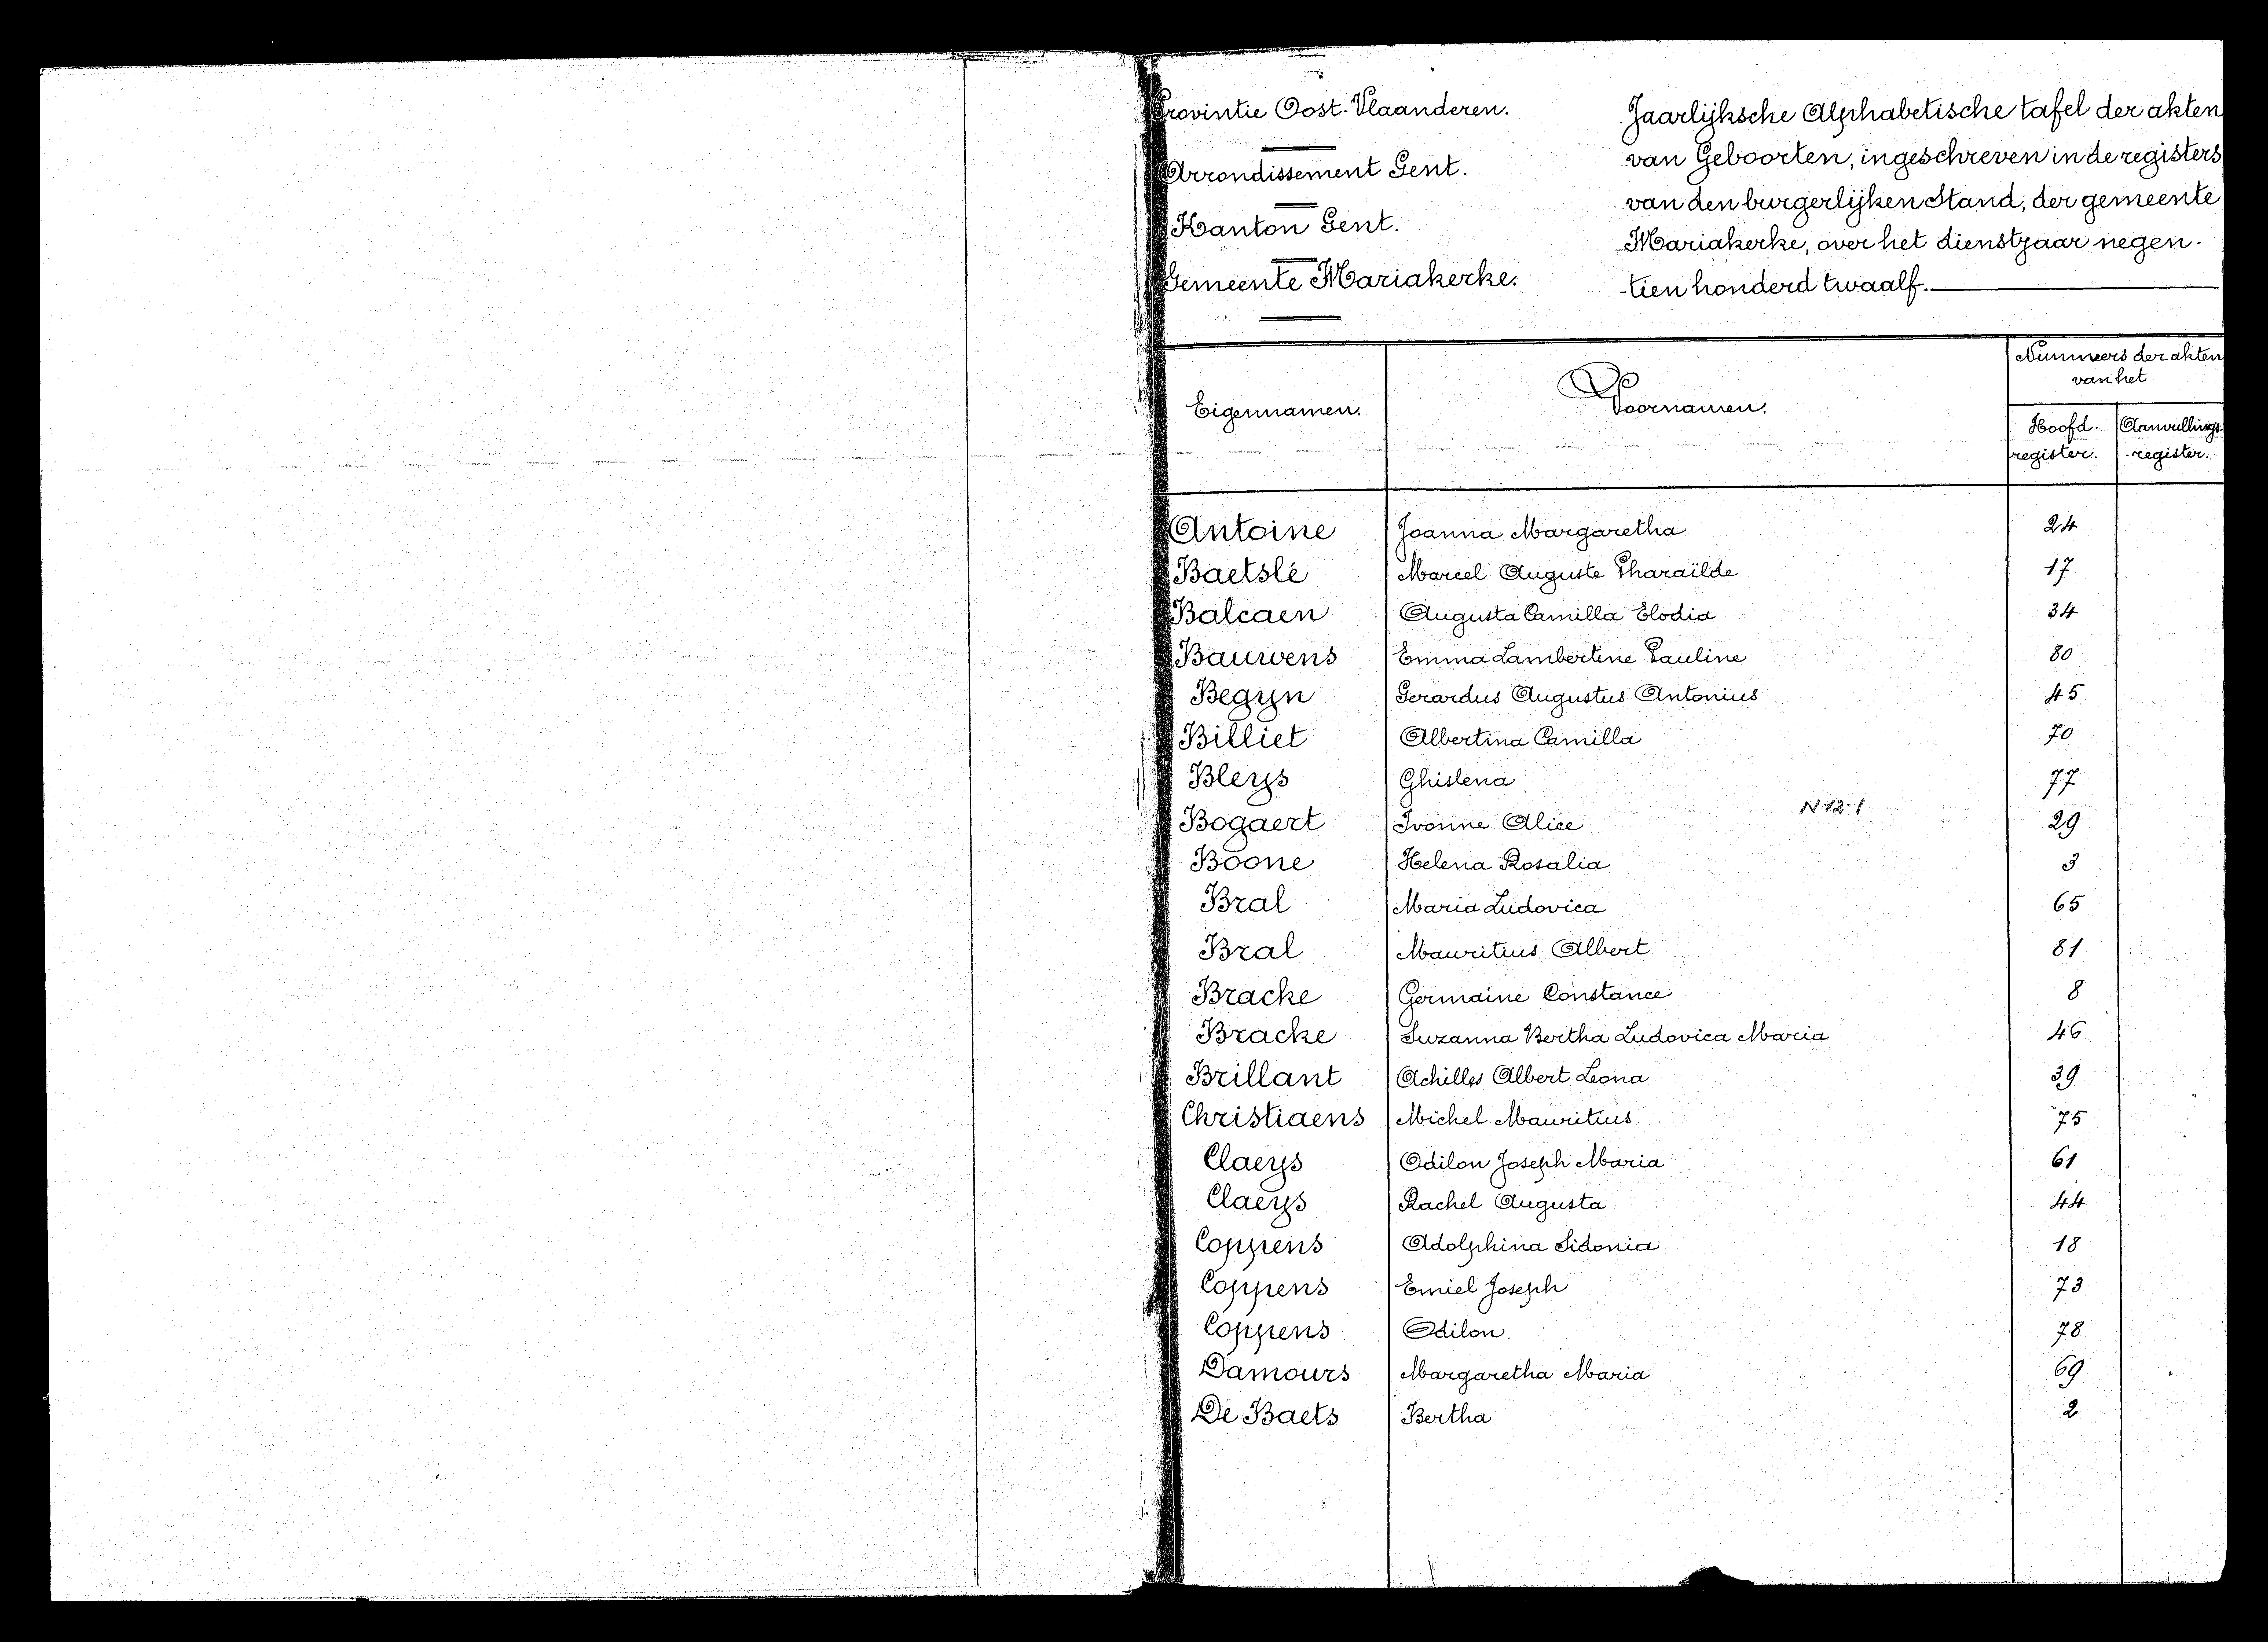 Provintie Oost-Vlaanderen.
Arrondissement Gent.
Kanton Gent.
Gemeente Mariakerke.
Jaarlijksche Alphabetische tafel der akten
van Geboorten, ingeschreven in de registers
van den burgerlijken Stand, der gemeente
Mariakerke, over het dienstjaar negen-
-tien honderd twaalf.
Eigennamen. Voornamen. Nummers der akten
van het
Hoofd- Aanvullings-
register. register.
Antoine Joanna Margaretha 24
Baetslé Marcel Auguste Pharaïlde 17
Balcaen Augusta Camilla Elodia 34
Bauwens Emma Lambertine Pauline 80
Begyn Gerardus Augustus Antonius 45
Billiet Albertina Camilla 70
Bleys Ghislena 77
N 12-1
Bogaert Ivonne Alice 29
Boone Helena Rosalia 3
Bral Maria Ludovica 65
Bral Mauritius Albert 81
Bracke Germaine Constance 8
Bracke Suzanna Bertha Ludovica Maria 46
Brillant Achilles Albert Leona 39
Christiaens Michel Mauritius 75
Claeys Odilon Joseph Maria 61
Claeys Rachel Augusta 44
Coppens Adolphina Sidonia 18
Coppens Emiel Joseph 73
Coppens Odilon. 78
Damours Margaretha Maria 69
De Baets Bertha 2